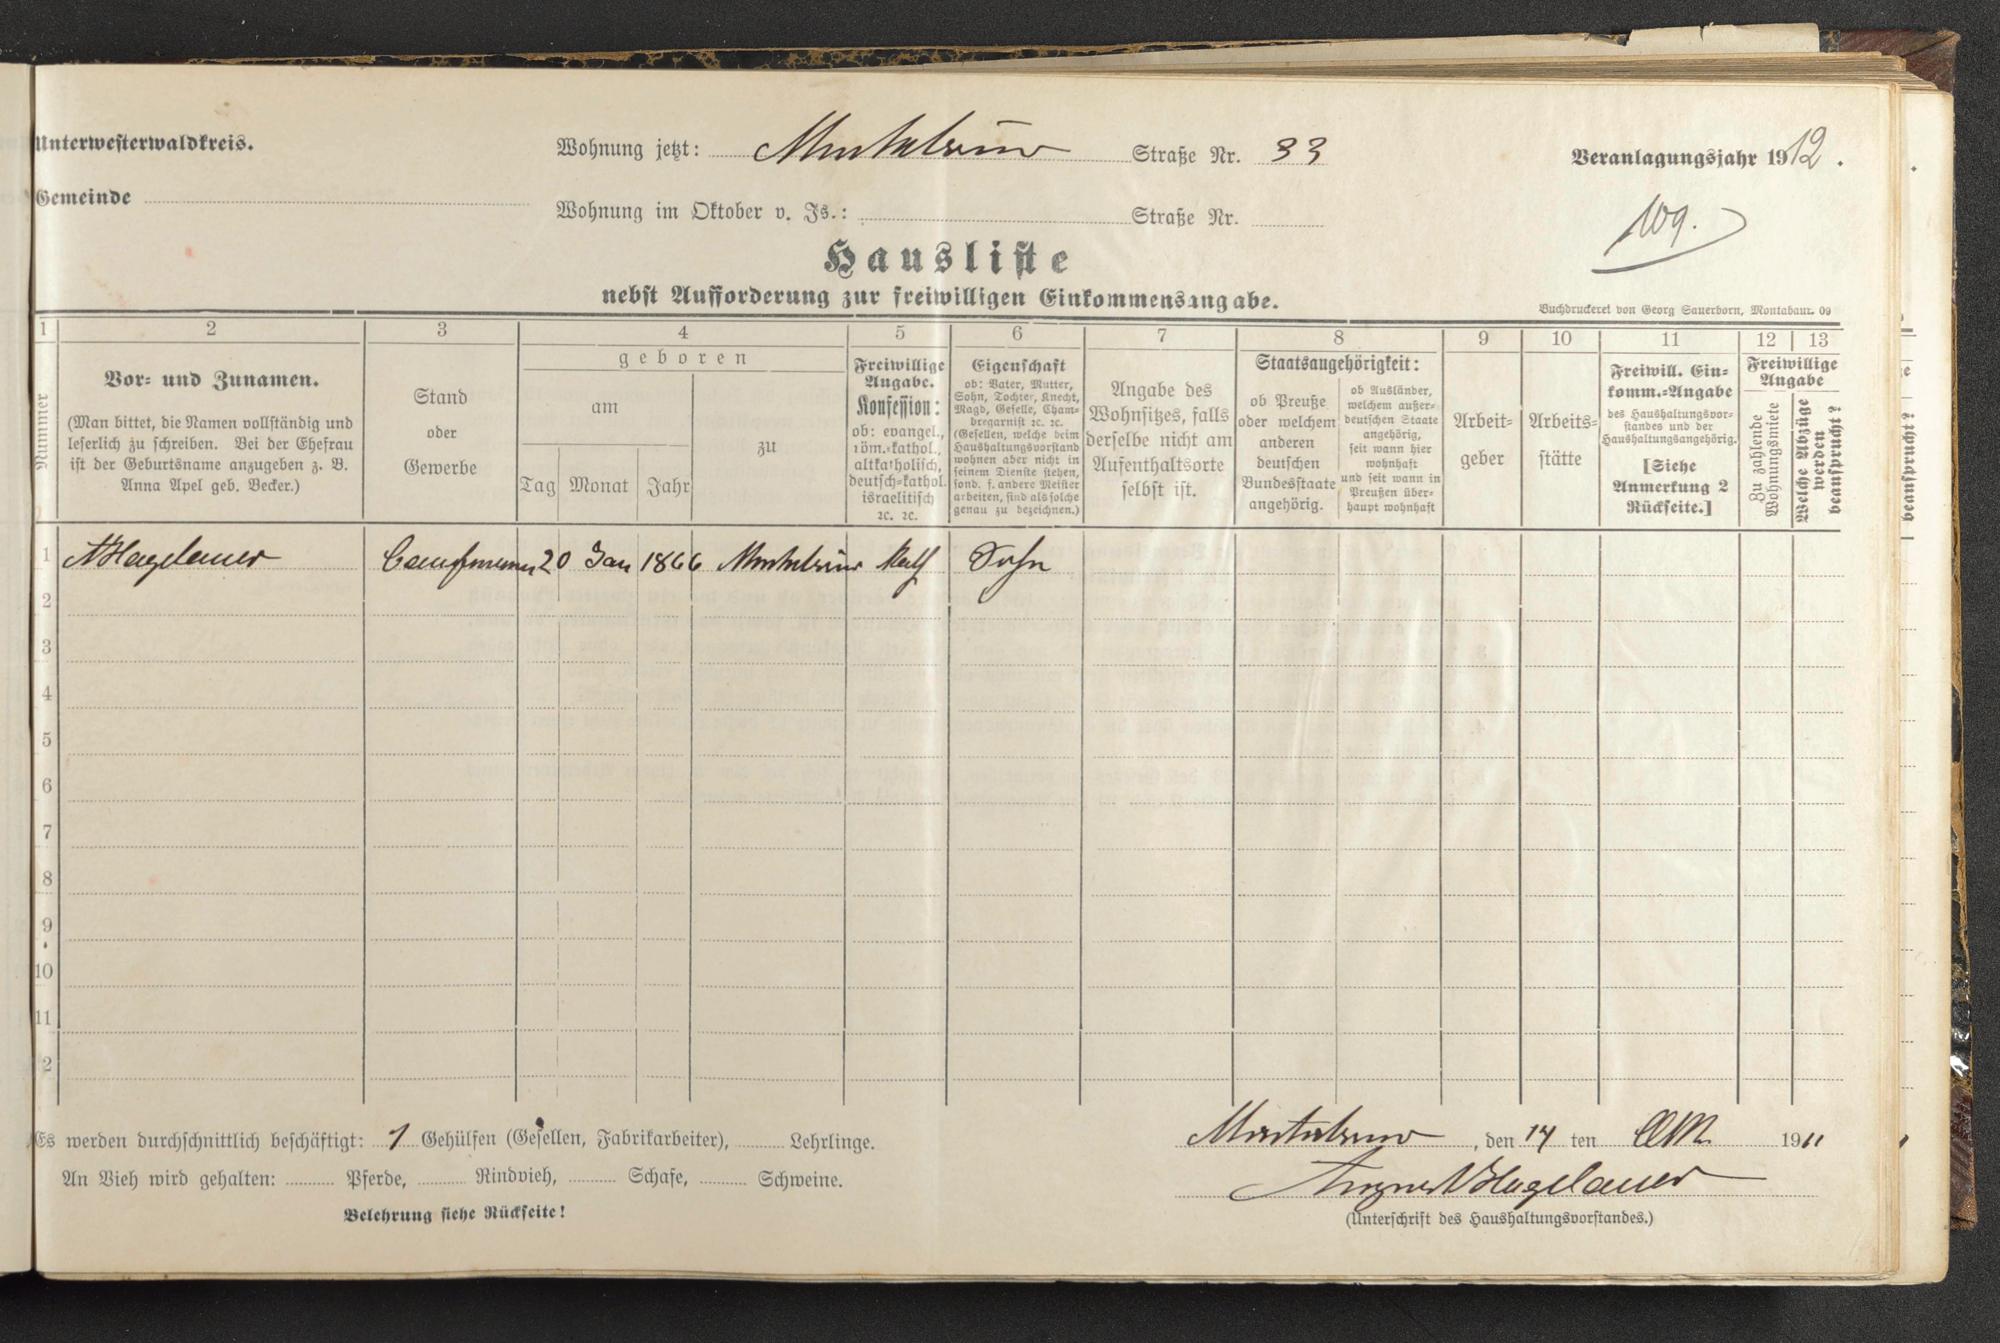 Unterwesterwaldkreis.
Wohnung jetzt: Straße Nr. 33
Veranlagungsjahr 1912.
Gemeinde
Wohnung im Oktober v. Js.: Straße Nr.
109.
Hausliste
nebst Aufforderung zur freiwilligen Einkommensangabe.
Buchdruckerei von Georg Sauerborn, Montabaur. 09
1 2 3 4 5 6 7 8 9 10 11 12 13
Nummer
Vor- und Zunamen.
(Man bittet, die Namen vollständig und
leserlich zu schreiben. Bei der Ehefrau
ist der Geburtsname anzugeben z. B.
Anna Apel geb. Becker.)
Stand
oder
Gewerbe
geboren
am
zu
Tag Monat Jahr
Freiwillige
Angabe.
Konfession:
ob: evangel.,
röm.-kathol.,
altkatholisch,
deutsch-kathol.
israelitisch
ꝛc. ꝛc.
Eigenschaft
ob: Vater, Mutter,
Sohn, Tochter, Knecht,
Magd, Geselle, Cham-
bregarnist ꝛc. ꝛc.
(Gesellen, welche beim
Haushaltungsvorstand
wohnen aber nicht in
seinem Dienste stehen,
sond. f. andere Meister
arbeiten, sind als solche
genau zu bezeichnen.)
Angabe des
Wohnsitzes, falls
derselbe nicht am
Aufenthaltsorte
selbst ist.
Staatsangehörigkeit:
ob Preuße
oder welchem
anderen
deutschen
Bundesstaate
angehörig.
ob Ausländer,
welchem außer-
deutschen Staate
angehörig,
seit wann hier
wohnhaft
und seit wann in
Preußen über-
haupt wohnhaft
Arbeit-
geber
Arbeits-
stätte
Freiwill. Ein-
komm.-Angabe
des Haushaltungsvor-
standes und der
Haushaltungsangehörig.
[Siehe
Anmerkung 2
Rückseite.]
Freiwillige
Angabe
Zu zahlende
Wohnungsmiete
Welche Abzüge
werden
beansprucht?
beansprucht?
1 20 Jan 1866 Kath Sohn
2
3
4
5
6
7
8
9
10
11
2
Es werden durchschnittlich beschäftigt: 1 Gehülfen (Gesellen, Fabrikarbeiter), Lehrlinge.
, den 14 ten 1911
An Vieh wird gehalten: Pferde, Rindvieh, Schafe, Schweine.
Belehrung siehe Rückseite!
(Unterschrift des Haushaltungsvorstandes.)